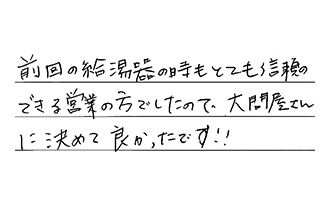 前回の給湯器の時もとても信頼の
できる営業の方でしたので、大問屋さん
に決めて良かったです!!